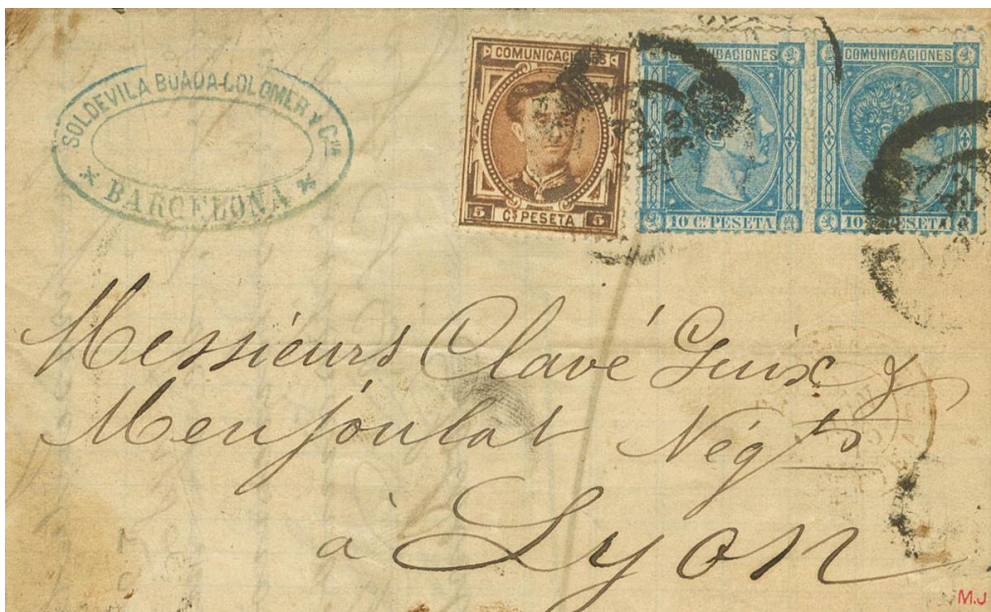 SOLDEVILA BUADA-COLOMER Y Cᴵᴬ
BARCELONA
COMUNICACIONES
5 Cˢ PESETA 5
COMUNICACIONES
10 Cˢ PESETA
COMUNICACIONES
10 Cˢ PESETA
Messieurs Clavé Guix &
Menjoulat Négᵗˢ
à Lyon
M.J